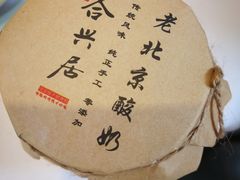 老北京酸奶
传统风味 纯正手工 零添加
合兴居